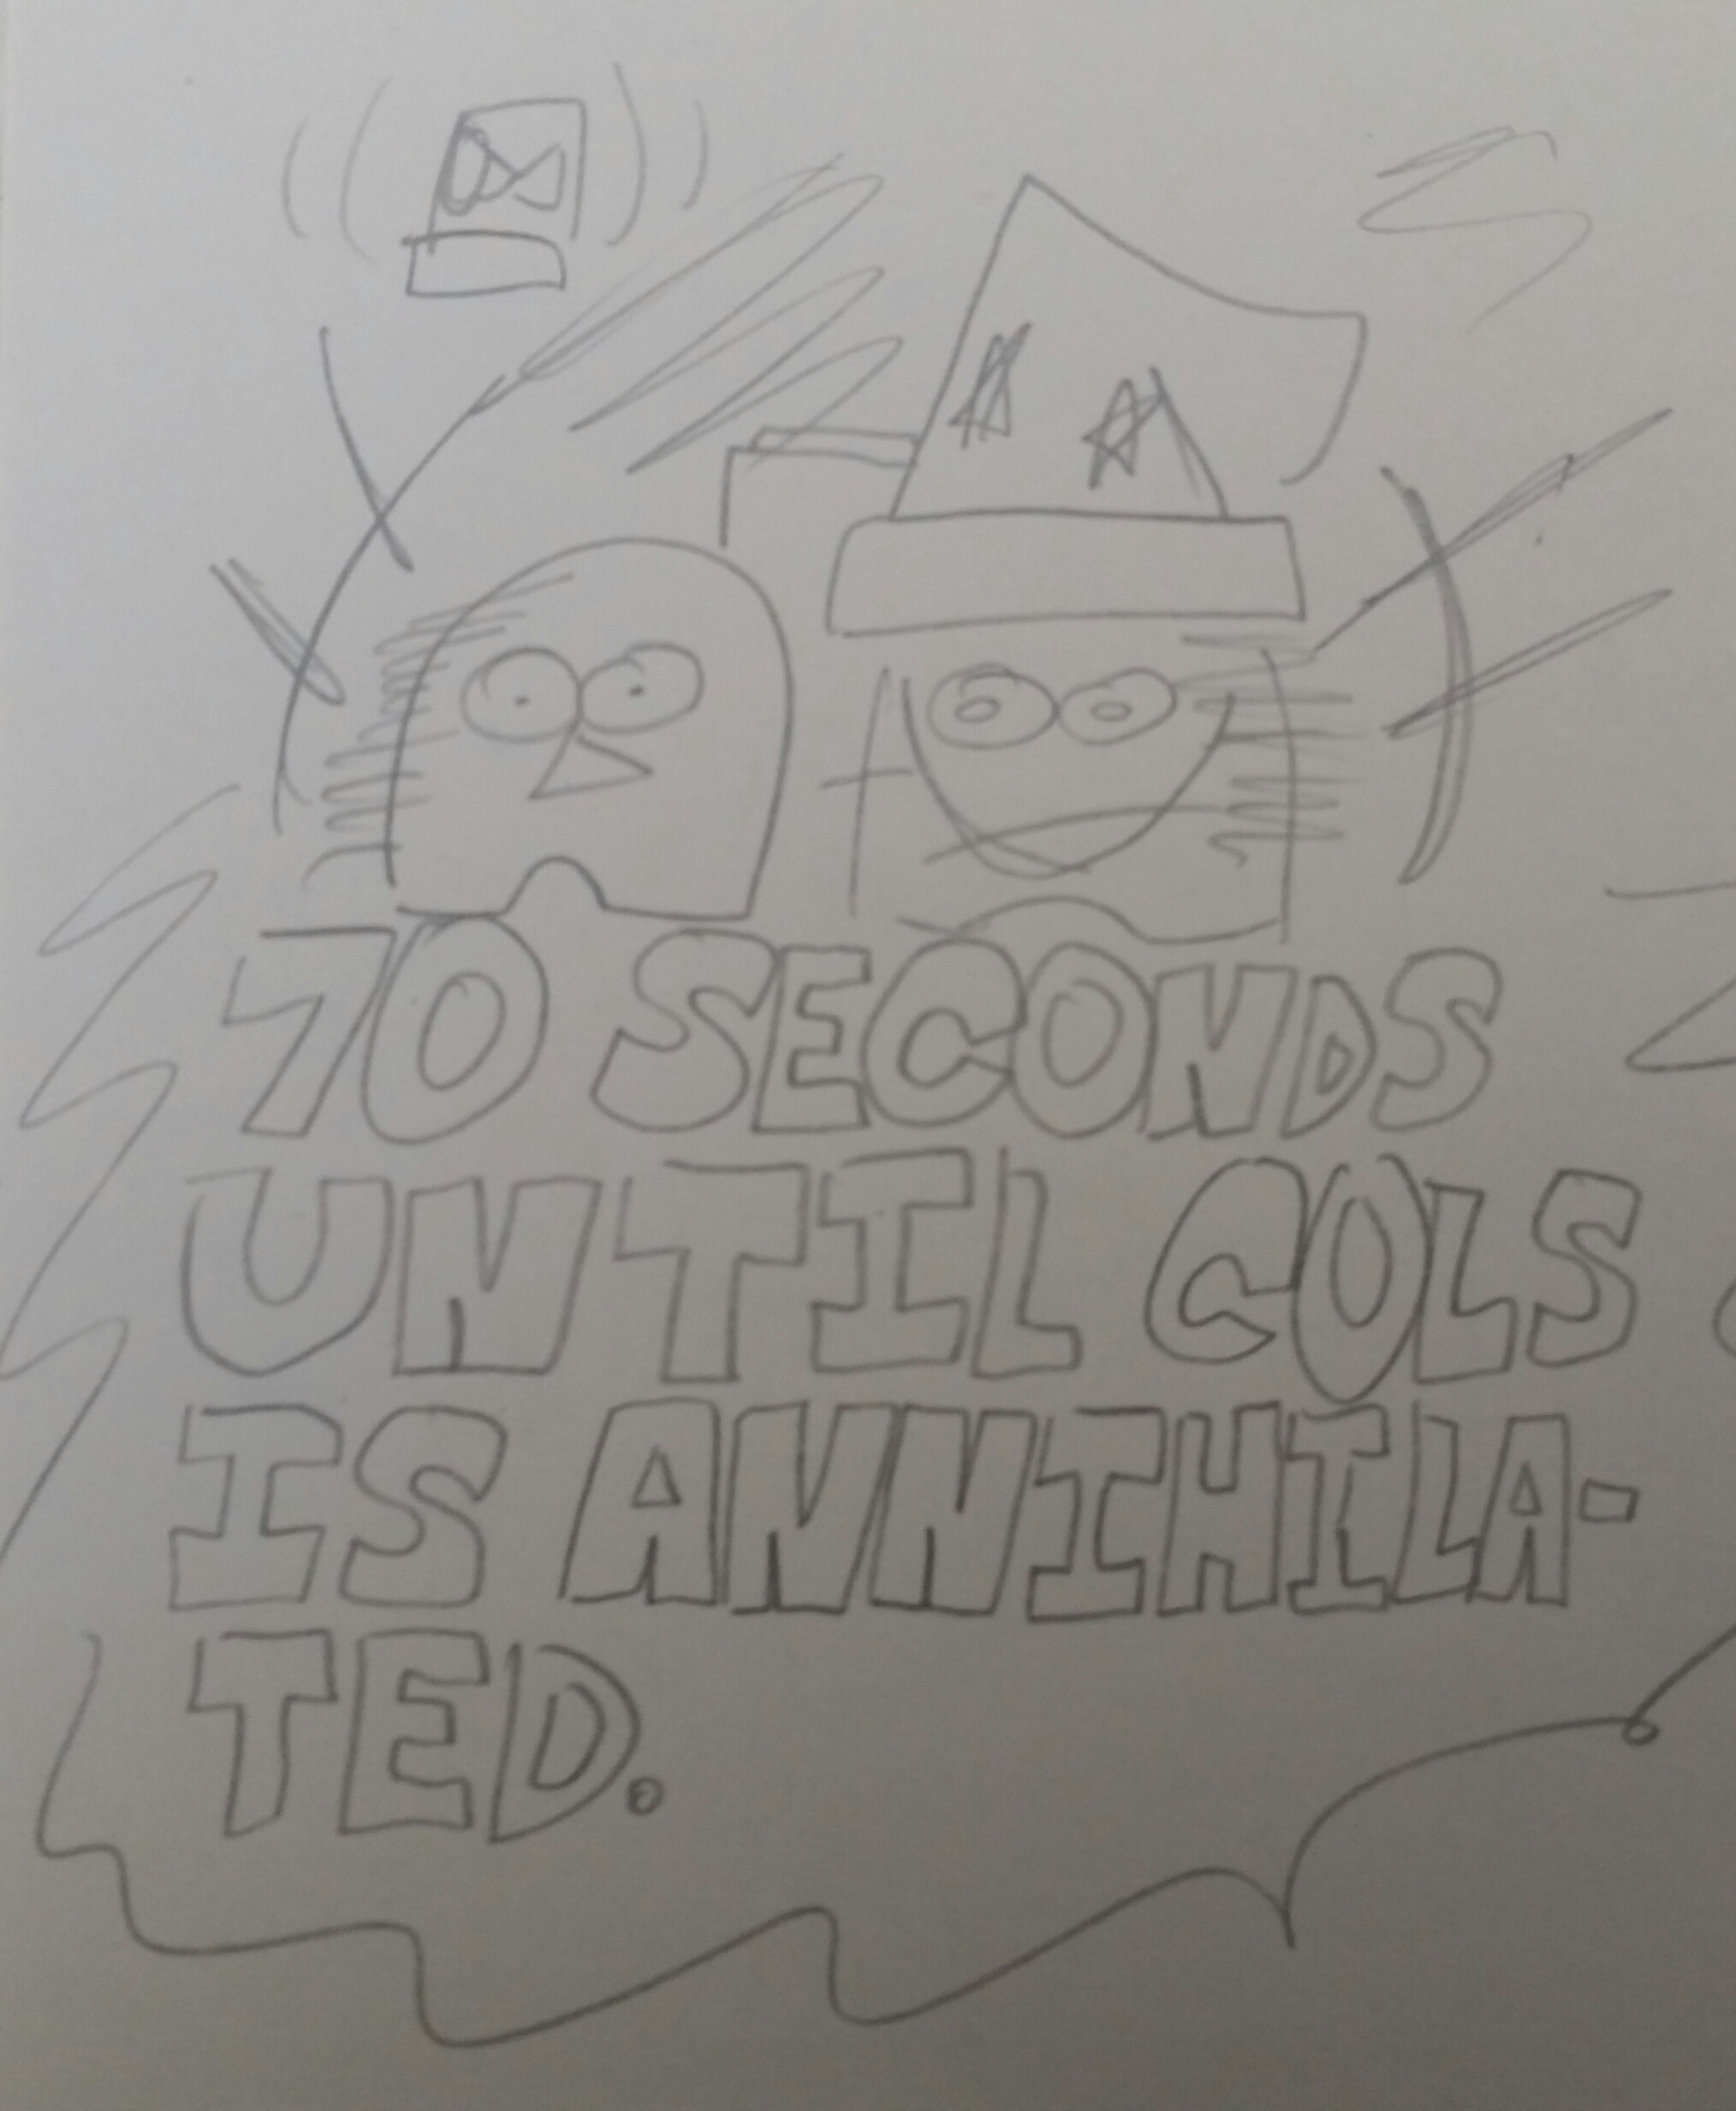 70 SECONDS
UNTIL COLS
IS ANNIHILA-
TED.